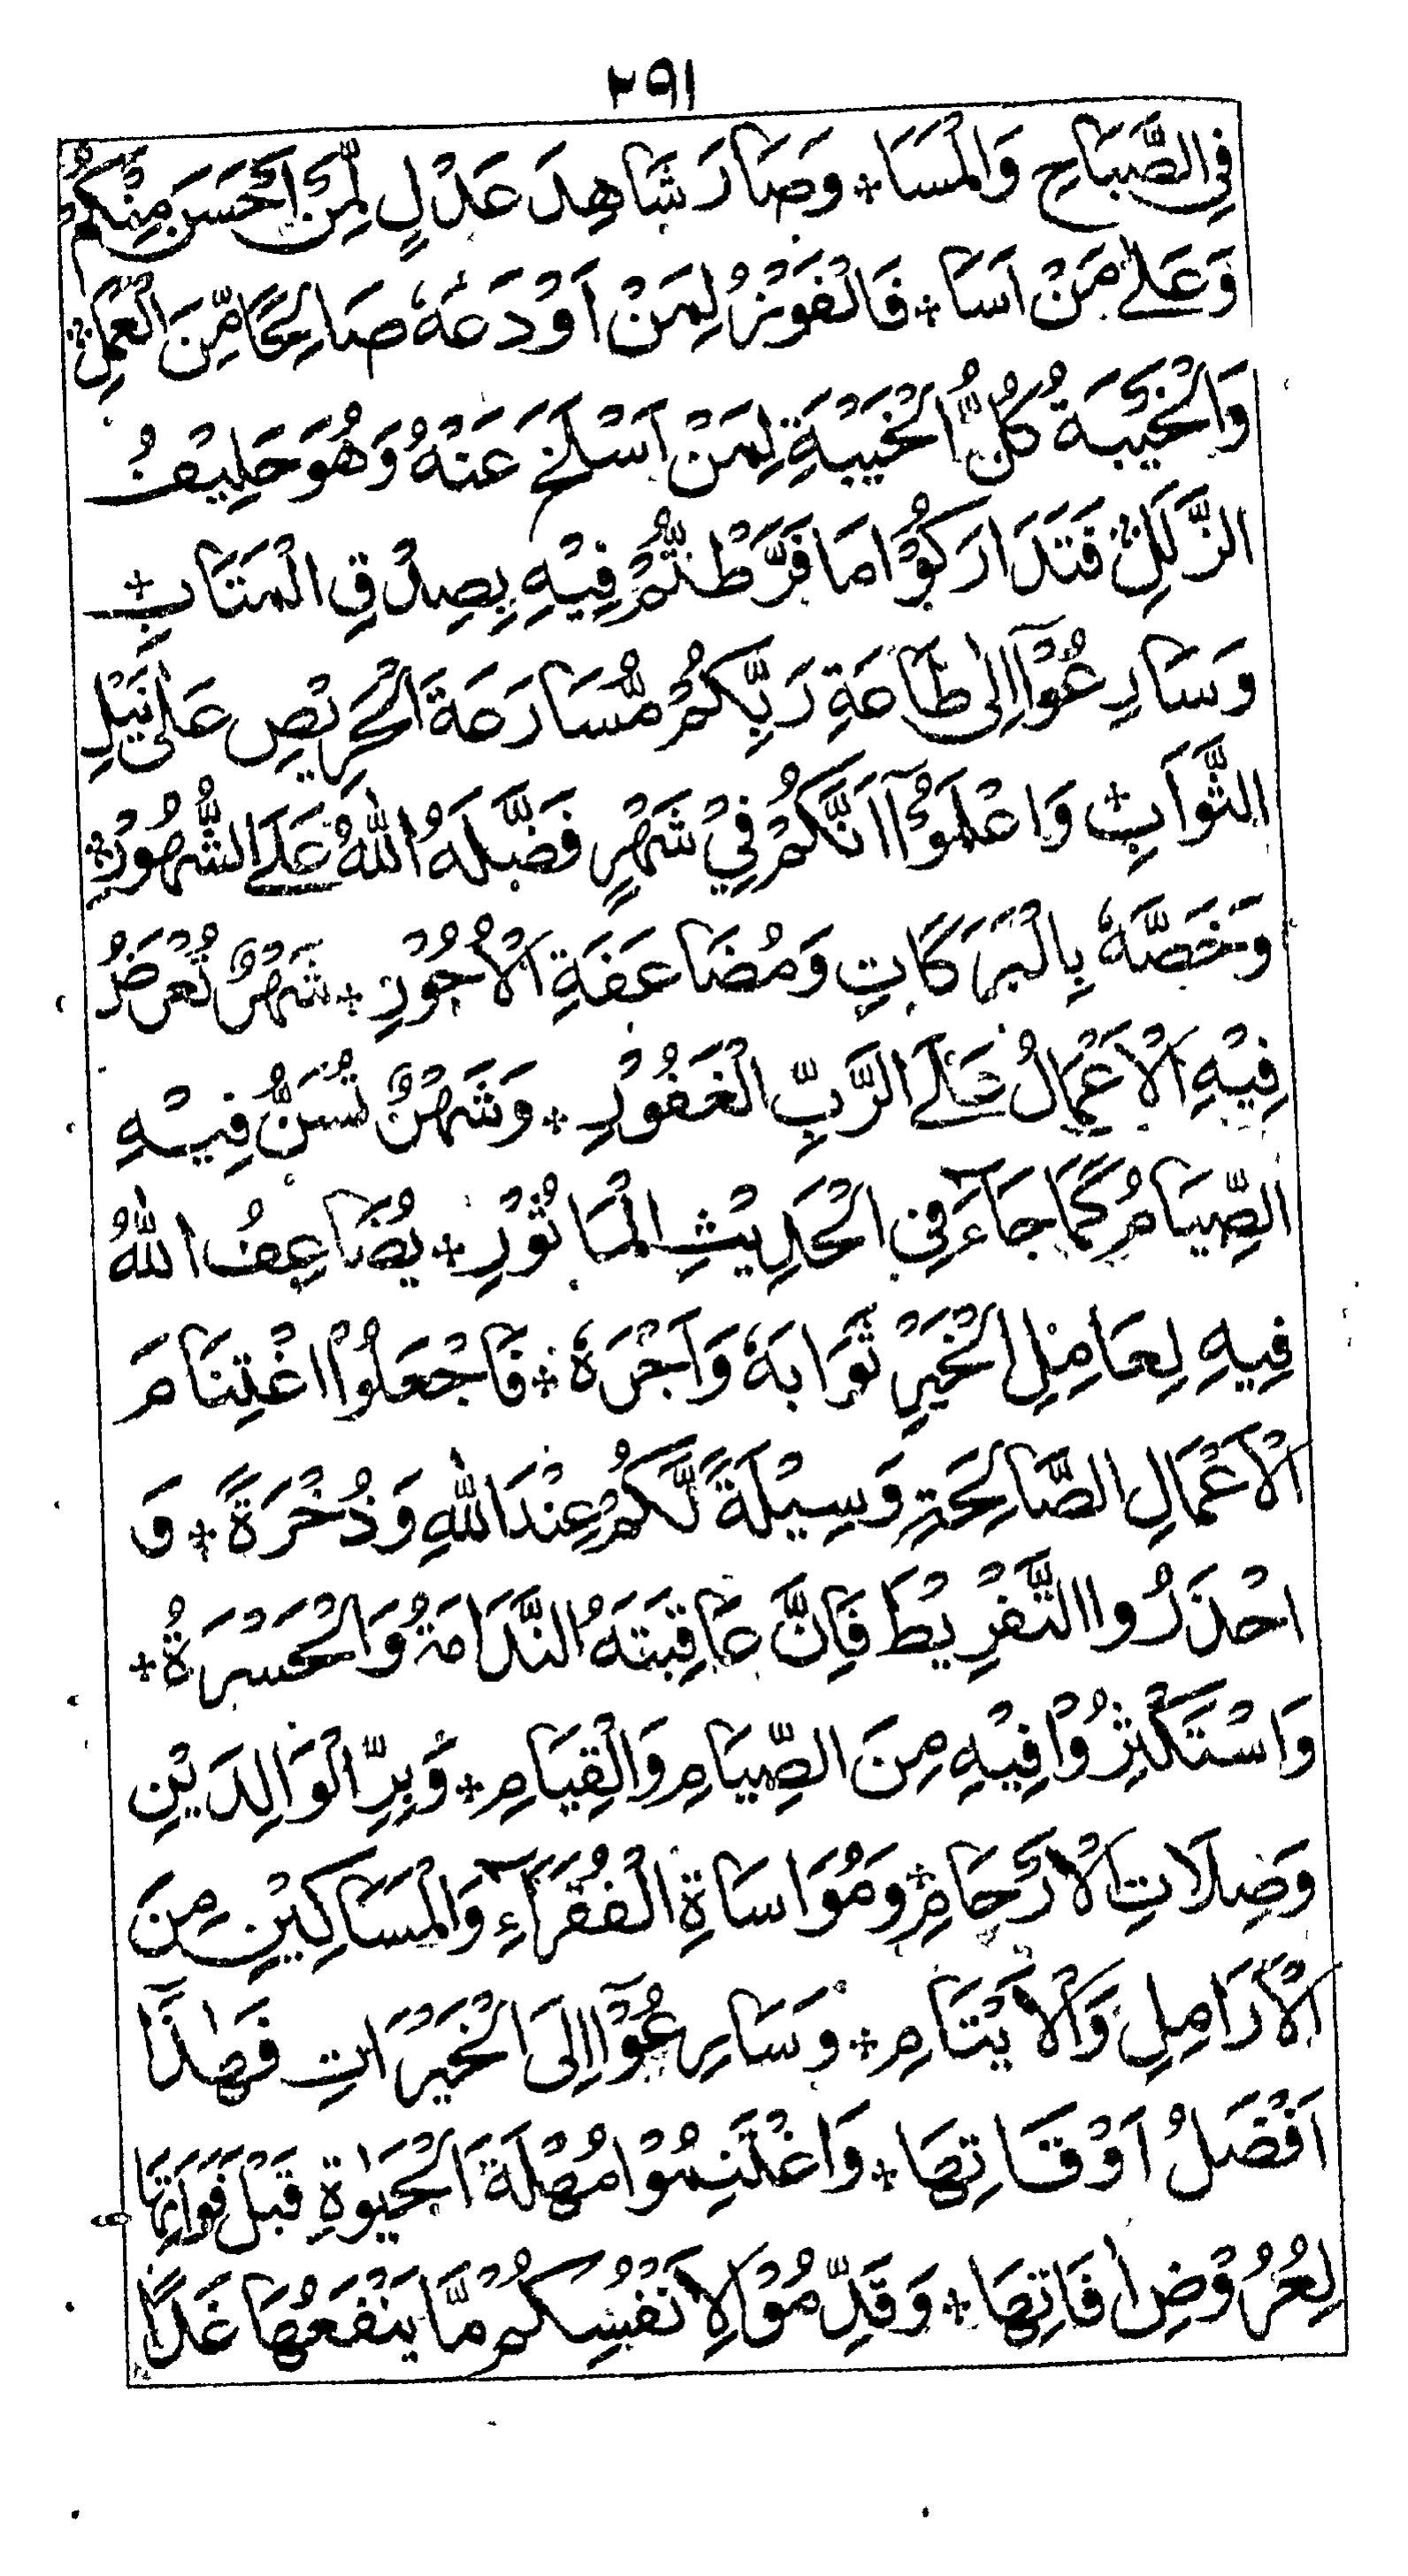 ٢٩١
فِي الصَّبَاحِ وَالْمَسَا؞ وَصَارَ شَاهِدَ عَدْلٍ لِّمَنْ اَحْسَنَ مِنْكُمْ
وَعَلٰے مَنْ اَسَا؞ فَالْفَوْزُ لِمَنْ اَوْدَعَهٗ صَالِحًا مِّنَ الْعَمَلِ؞
وَالْخَيْبَةُ كُلُّ الْخَيْبَةِ لِمَنْ اَسْلَخَ عَنْهُ وَهُوَ حَلِيْفُ
الزَّلَلِ؞ فَتَدَارَكُوْا مَا فَرَّطْتُّمْ فِيْهِ بِصِدْقِ الْمَتَابِ؞
وَسَارِعُوْٓا اِلٰى طَاعَةِ رَبِّكُمْ مُّسَارَعَةَ الْحَرِيْصِ عَلٰى نَيْلِ
الثَّوَابِ؞ وَاعْلَمُوْٓا اَنَّكُمْ فِيْ شَهْرٍ فَضَّلَهُ اللّٰهُ عَلَے الشُّهُوْرِ؞
وَخَصَّهٗ بِالْبَرَكَاتِ وَمُضَاعَفَةِ الْاُجُوْرِ؞ شَهْرٌ تُعْرَضُ
فِيْهِ الْاَعْمَالُ عَلَے الرَّبِّ الْغَفُوْرِ؞ وَشَهْرٌ تُسَنُّ فِيْهِ
الصِّيَامُ كَمَا جَآءَ فِي الْحَدِيْثِ الْمَاثُوْرِ؞ يُضَاعِفُ اللّٰهُ
فِيهِ لِعَامِلِ الْخَيْرِ ثَوَابَهٗ وَاَجْرَهٗ؞ فَاجْعَلُوْا اغْتِنَامَ
الْاَعْمَالِ الصَّالِحَةِ وَسِيْلَةً لَّكُمْ عِنْدَ اللّٰهِ وَذُخْرَةً؞ وَ
احْذَرُوا التَّفْرِيْطَ فَاِنَّ عَاقِبَتَهُ النَّدَامَةُ وَالْحَسْرَةُ؞
وَاسْتَكْثِرُوْا فِيْهِ مِنَ الصِّيَامِ وَالْقِيَامِ؞ وَبِرِّ الْوَالِدَيْنِ
وَصِلَاتِ الْاَرْحَامِ؞ وَمُوَاسَاةِ الْفُقَرَآءِ وَالْمَسَاكِيْنِ مِنَ
الْاَرَامِلِ وَالْاَيْتَامِ؞ وَسَارِعُوْٓا اِلَى الْخَيْرَاتِ فَهٰذَا
اَفْضَلُ اَوْقَاتِهَا؞ وَاغْتَنِمُوْا مُهْلَةَ الْحَيٰوةِ قَبْلَ فَوَاتِهَا
لِعُرُوْضِ اٰفَاتِهَا؞ وَقَدِّمُوْا لِاَنْفُسِكُمْ مَّا يَنْفَعُهَا غَدًا